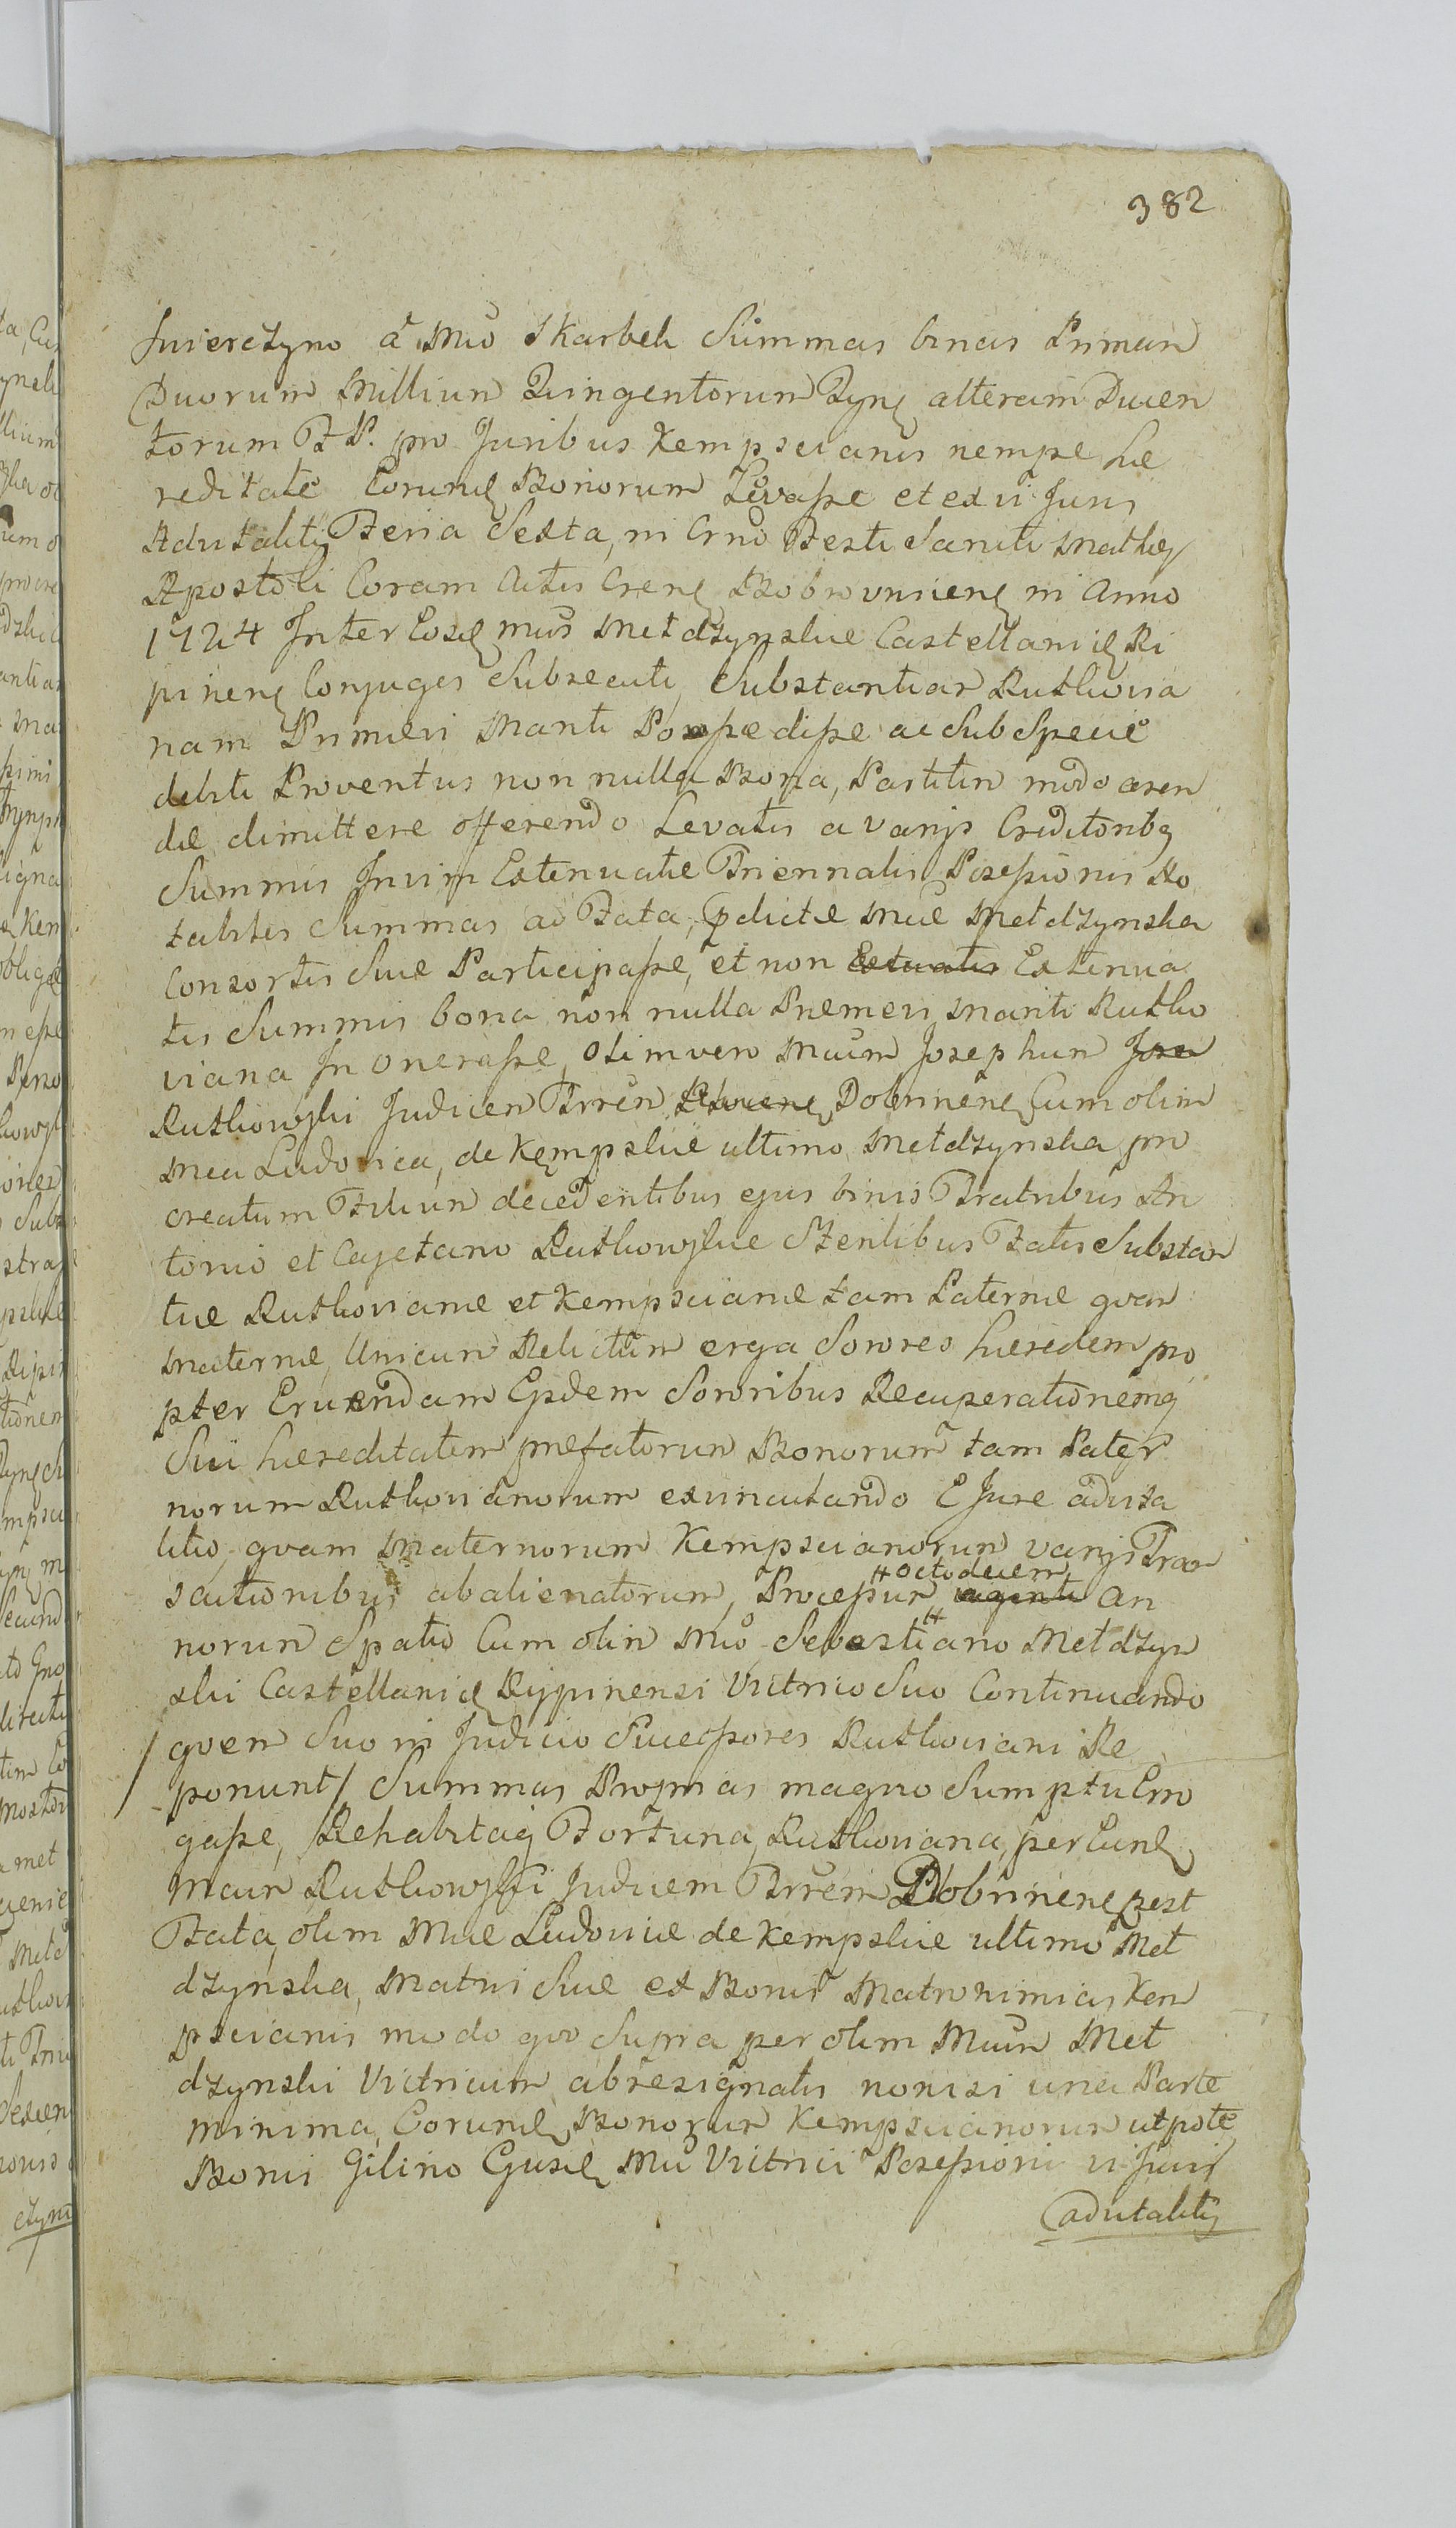 382
Swierczyno a Mco Skarbek Summas binas Primam
Duorum Millium Quingentorum Tynf alteram Ducen
torum F P. pro Juribus Kempscianis nempe hæ
reditate Eorund Bonorum Levasse et ex vi Juris
Advitalitij Feria Sexta, in Crno Festi Sancti Mathæj
Apostoli Coram Actis Cren Bobrovnicen in Anno
1724 Inter Eosd Mcos Metdzynskie Castellanid Ri
pinen Conjuges Subsecuti, Substantiar Rutkovia
nam Primævi Mariti Possedisse ac Sub Specie
debiti Proventus non nulla Bona, Partitim modo aren
dæ dimittere offerendo Levatis a varijs Creditoribg
Summis In vim Extenuatæ Triennalis Possessionis No
tabiles Summas ad Fata, pdictæ Mcæ Metdzynska
Consortis Suæ Participasse, et non Extenua
tis Summis bona non nulla Premevi Mariti Rutko
viana In onerasse, Olim vero Mcum Josephum
Rutkowski Judicem Trren Dobrinen Cum olim
Mca Ludovica, de Kempskie ultimo Metdzynska pro
creatum Filium decedentibus ejus binis Fratribus An
tonio et Cajetano Rutkowskie Sterilibus Fatis Substan
tiæ Rutkovianæ et Kempscianæ tam Paternæ qvam
Maternæ, Unicum Relictum erga Sorores hæredem pro
pter Eruendam Ejsdem Sororibus Recuperationemq
Sui hæreditatem prefatorum Bonorum tam Pater
norum Rutkovianorum exvinculando E Jure advita
litio qvam Maternorum Kempscianorum varijs Tran
sactionibus abalienatorum, Processum # octodecem an
norum Spatio Cum olim Mco Sebastiano Metdzyn
ski Castellanid Rypinensi Vitrico Suo Continuando
/ qvem Suo in Judicio Successores Rutkoviani Re
ponunt / Summas Proprias magno Sumptu Erro
gasse, Rehabitaq Fortuna, Rutkoviana, per Eund
Mcum Rutkowski Judicem Trrem Dobrinen post
Fata olim Mcæ Ludovicæ de Kempskie ultimo Met
dzynska, Matris Suæ et Bonis Matrnimias Kem
pscianis modo qvo Supra per olim Mcum Met
dzynski Vitricum abresignatis nonisi una Parte
minima, Eorund Bonorum Kempscianorum utpote
Bonis Gilino Ejusd Mci Vitrici Possessioni vi Juris
advitalitij